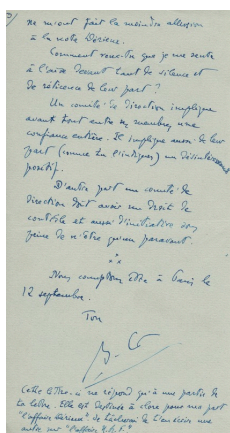 ne m'ont fait la moindre allusion
à la note
Comment veux-tu que je me sente
à l'aise devant tant de silence et
de réticence de leur part ?
Un comité de direction implique
avant tout entre ses membres une
confiance entière. Il implique aussi de leur
part (comme tu l'indiques) un désintéressement
positif.
D'autre part un comité de
direction doit avoir un droit de
contrôle et aussi d'initiative sous
peine de n'être qu'un paravent.
Nous comptons être à Paris le
12 septembre.
Ton
Cette lettre-ci ne répond qu'à une partie de
ta lettre. Elle est destinée à clore pour ma part
"l'affaire". Je tâcherai de t'en écrire une
autre sur "l'affaire